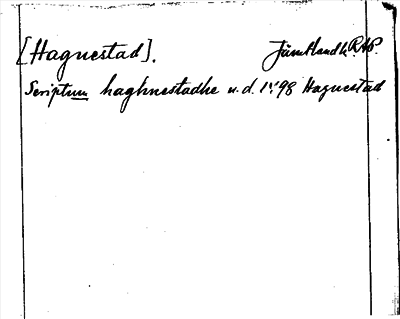 [Hagnestad].
Scriptum haghnestadhe u.d. 1498 Hagnestad